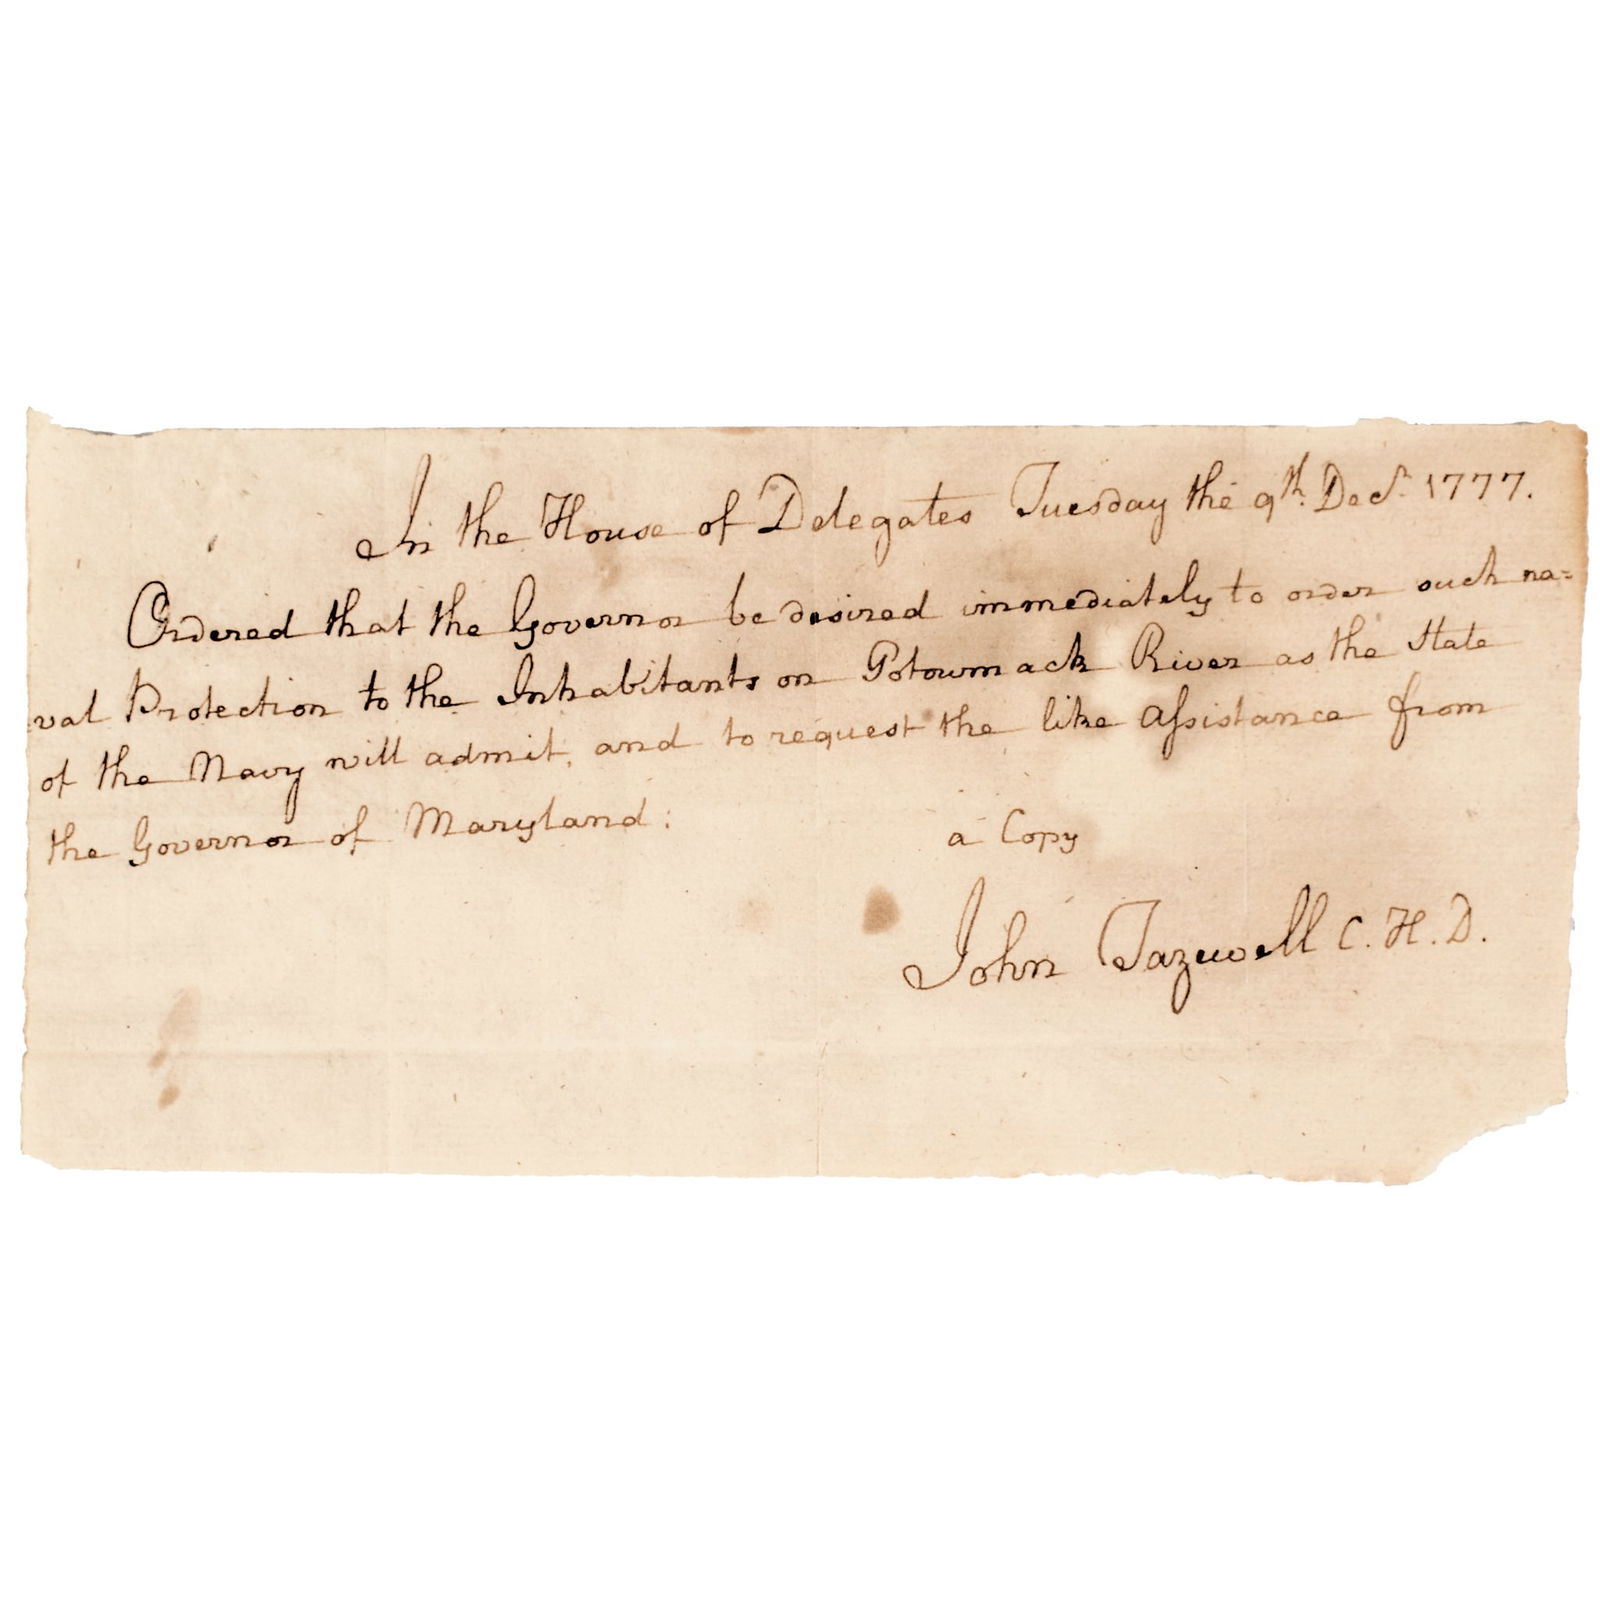 In the House of Delegates Tuesday the 9th. Decr. 1777.
Ordered that the Governor be desired immediately to order such na=
val Protection to the Inhabitants on Potowmack River as the State
of the Navy will admit, and to request the like Assistance from
the Governor of Maryland.
a Copy
John Tazewell C. H. D.